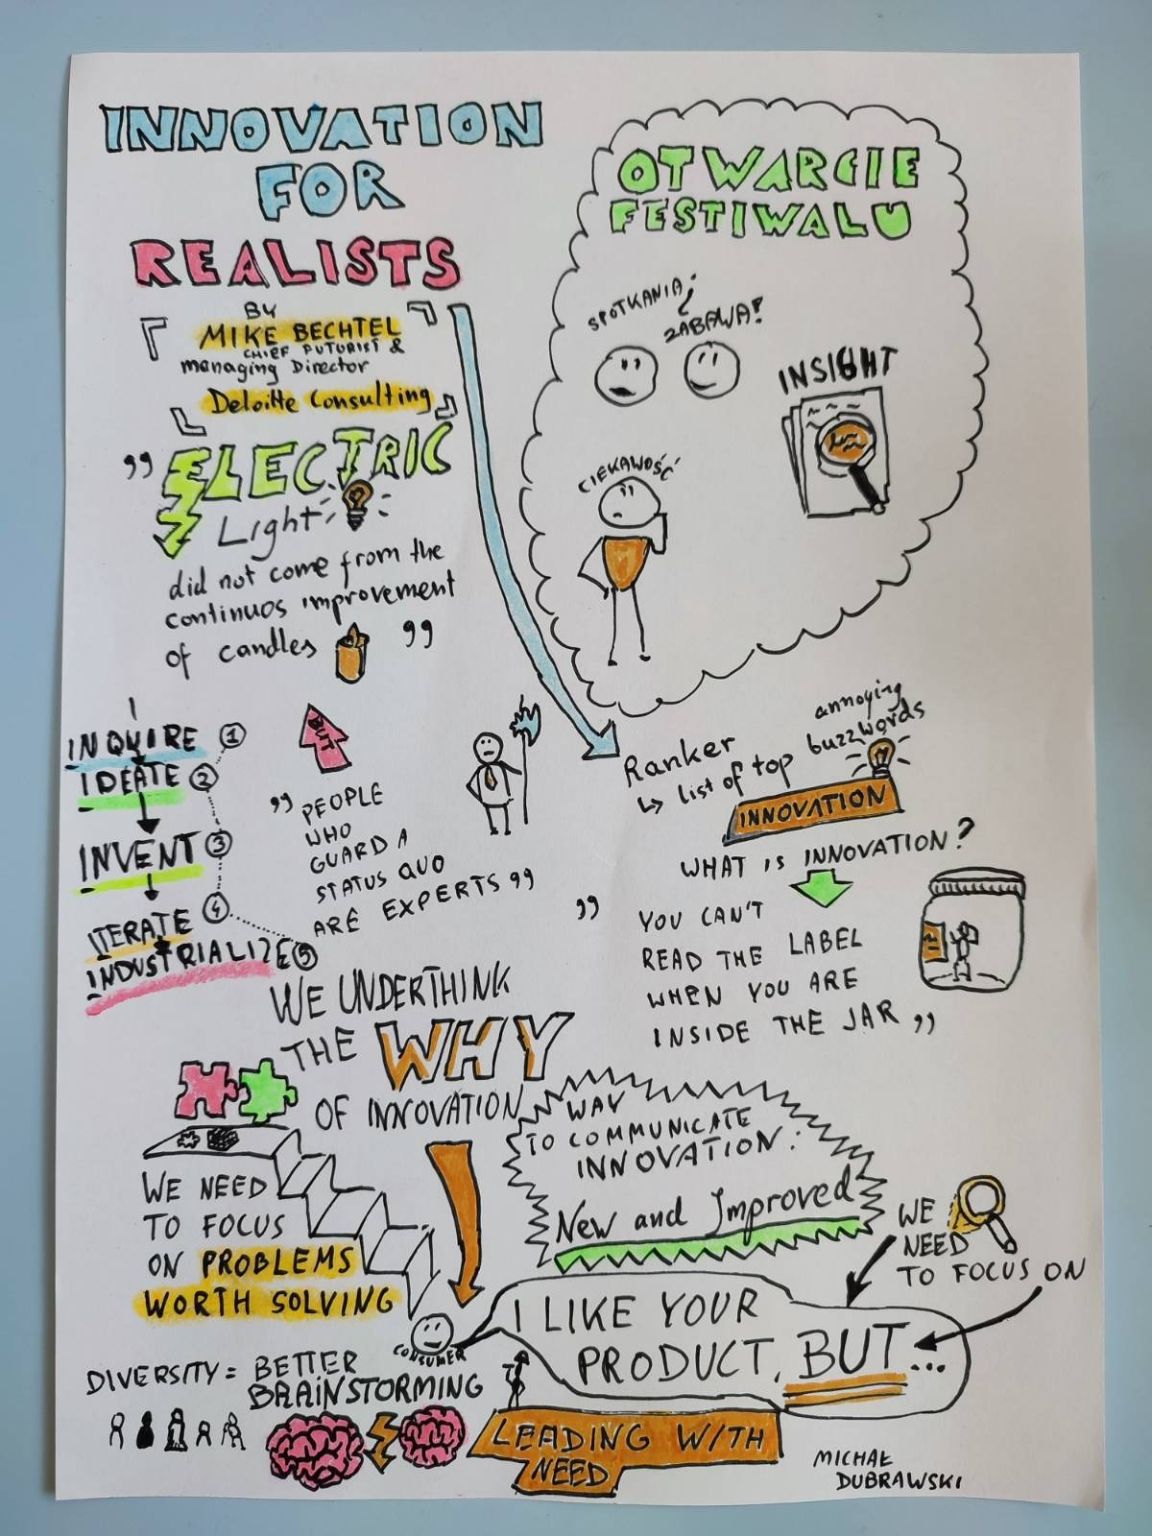 INNOVATION
FOR
REALISTS
BY
MIKE BECHTEL
CHIEF FUTURIST &
managing Director
Deloitte Consulting
OTWARCIE
FESTIWALU
SPOTKANIA
ZABAWA!
INSIGHT
CIEKAWOŚĆ
,, ELECTRIC
Light
did not come from the
continuos improvement
of candles ,,
INQUIRE 1
IDEATE 2
INVENT 3
ITERATE 4
INDUSTRIALIZE 5
BUT
,, PEOPLE
WHO
GUARD A
STATUS QUO
ARE EXPERTS ,,
annoying
Ranker
↳ list of top buzzwords
INNOVATION
WHAT IS INNOVATION?
,, YOU CAN'T
READ THE LABEL
WHEN YOU ARE
INSIDE THE JAR ,,
WE UNDERTHINK
THE WHY
OF INNOVATION
WE NEED
TO FOCUS
ON PROBLEMS
WORTH SOLVING
WAY
TO COMMUNICATE
INNOVATION:
New and Improved
WE
NEED
TO FOCUS ON
CONSUMER
I LIKE YOUR
PRODUCT, BUT...
DIVERSITY = BETTER
BRAINSTORMING
LEADING WITH
NEED
MICHAŁ
DUBRAWSKI